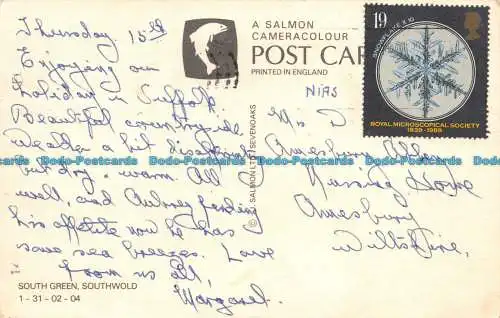 Thursday 15th
Enjoying our
holiday in Suffolk.
Beautiful country-side
weather a bit
but dry & warm. All
well, and Aubrey finding
his appetite now he has
some sea breezes. Love
from us all,
Margaret.
SOUTH GREEN, SOUTHWOLD
1 - 31 - 02 - 04
A SALMON
CAMERACOLOUR
POST CAR
PRINTED IN ENGLAND
© J. SALMON LTD SEVENOAKS
N/AS
19
SNOWFLAKE X 10
ROYAL MICROSCOPICAL SOCIETY
1839-1989
Amesbury Abbey
Nursing Home
Amesbury
Wiltshire.
Dodo-Postcards Dodo-Postcards Dodo-Postcards Dodo-Postcards